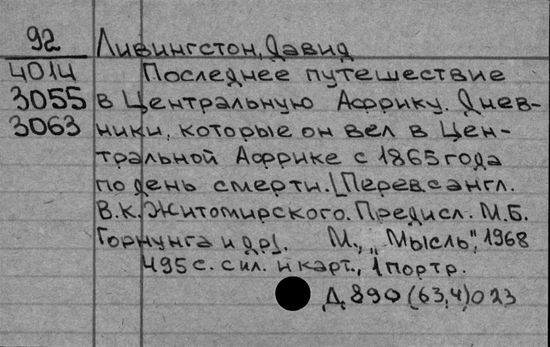 92 Ливингстон, Давид
4014 Последнее путешествие
3055 в Центральную Африку. Днев-
3063 ники, которые он вел в Цен-
тральной Африке с 1865 года
по день смерти. [Перев. с англ.
В.К. Житомирского. Предисл. М.Б.
Горнунга и др]. М., "Мысль", 1968
495 с. с ил. и карт., 1 портр.
Д 890(63,4)023